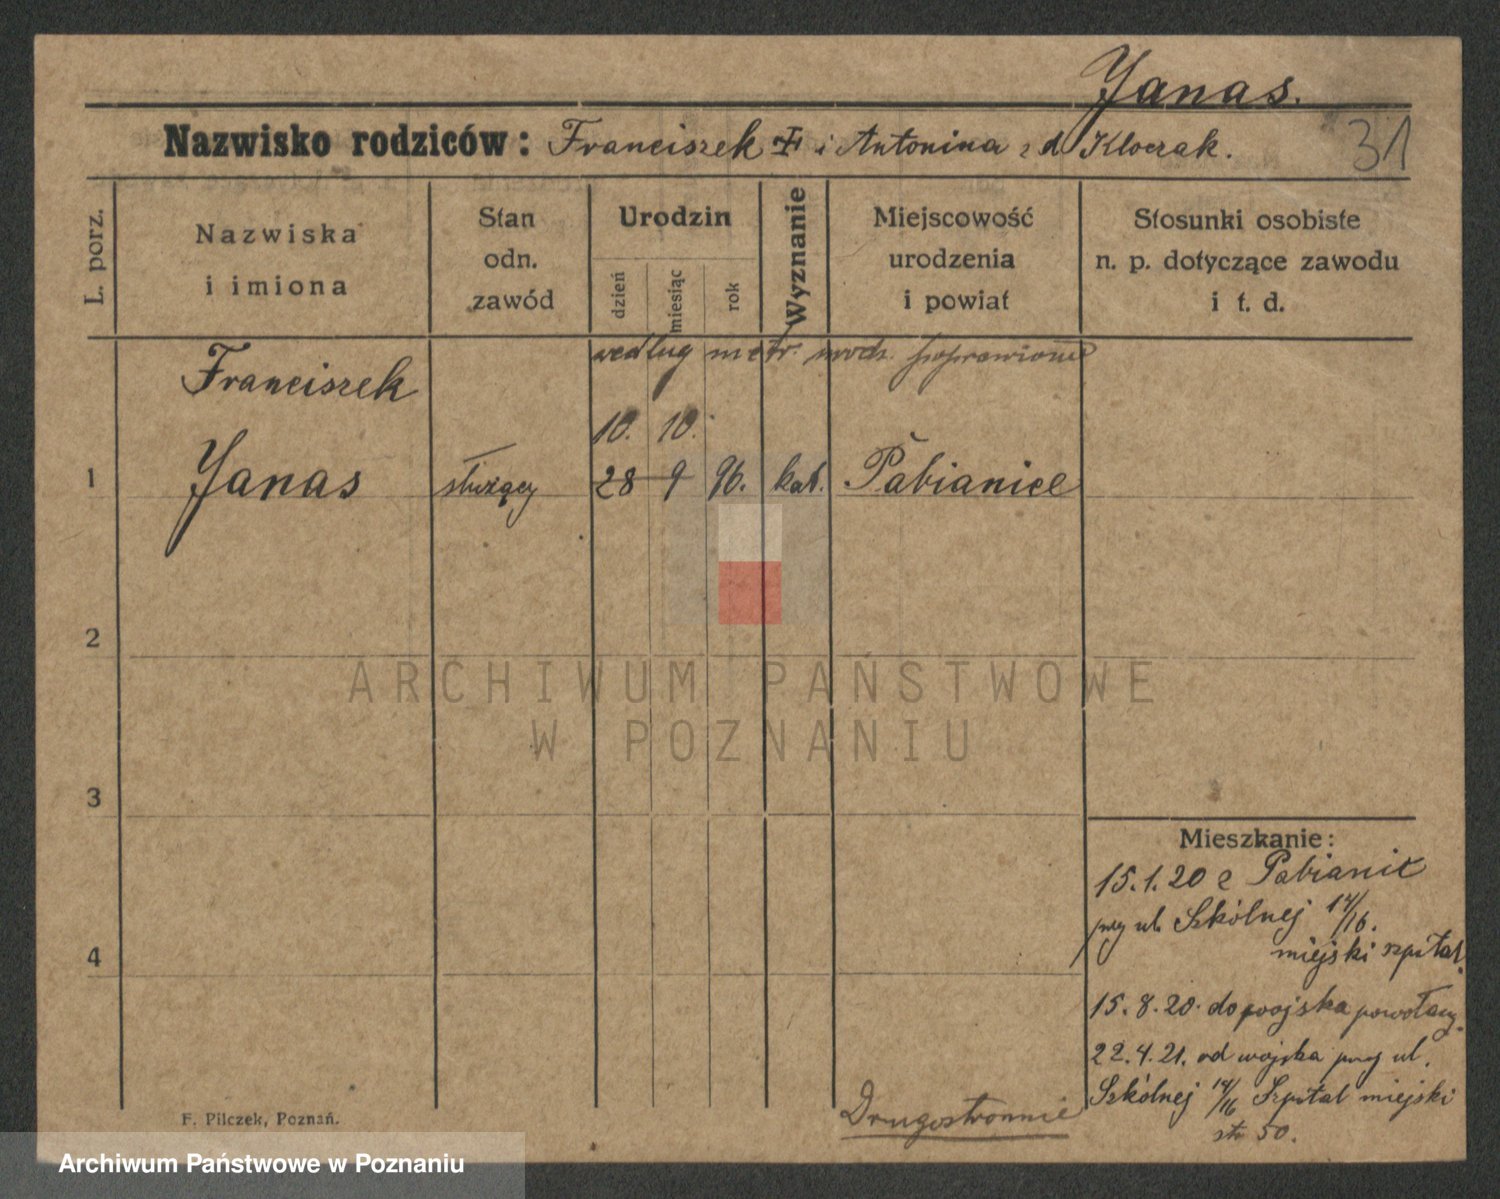 Janas.
Nazwisko rodziców: Franciszek i Antonina z d Kloczak.
31
L. porz.
Nazwiska
i imiona
Stan
odn.
zawód
Urodzin
dzień
miesiąc
rok
Wyznanie
Miejscowość
urodzenia
i powiat
Stosunki osobiste
n. p. dotyczące zawodu
i t. d.
według metr. urodz. poprawione
Franciszek
10. 10.
1 Janas służący 28 9 96. kat. Pabianice
2
ARCHIWUM PAŃSTWOWE
W POZNANIU
3
Mieszkanie:
15.1.20 z Pabianic
przy ul. Szkólnej 14/16.
miejski szpital.
4
15.8.20. do wojska powołany.
22.4.21. od wojska przy ul.
Szkólnej 14/16 Szpital miejski
str 50.
Drugostronnie
F. Pilczek, Poznań.
Archiwum Państwowe w Poznaniu